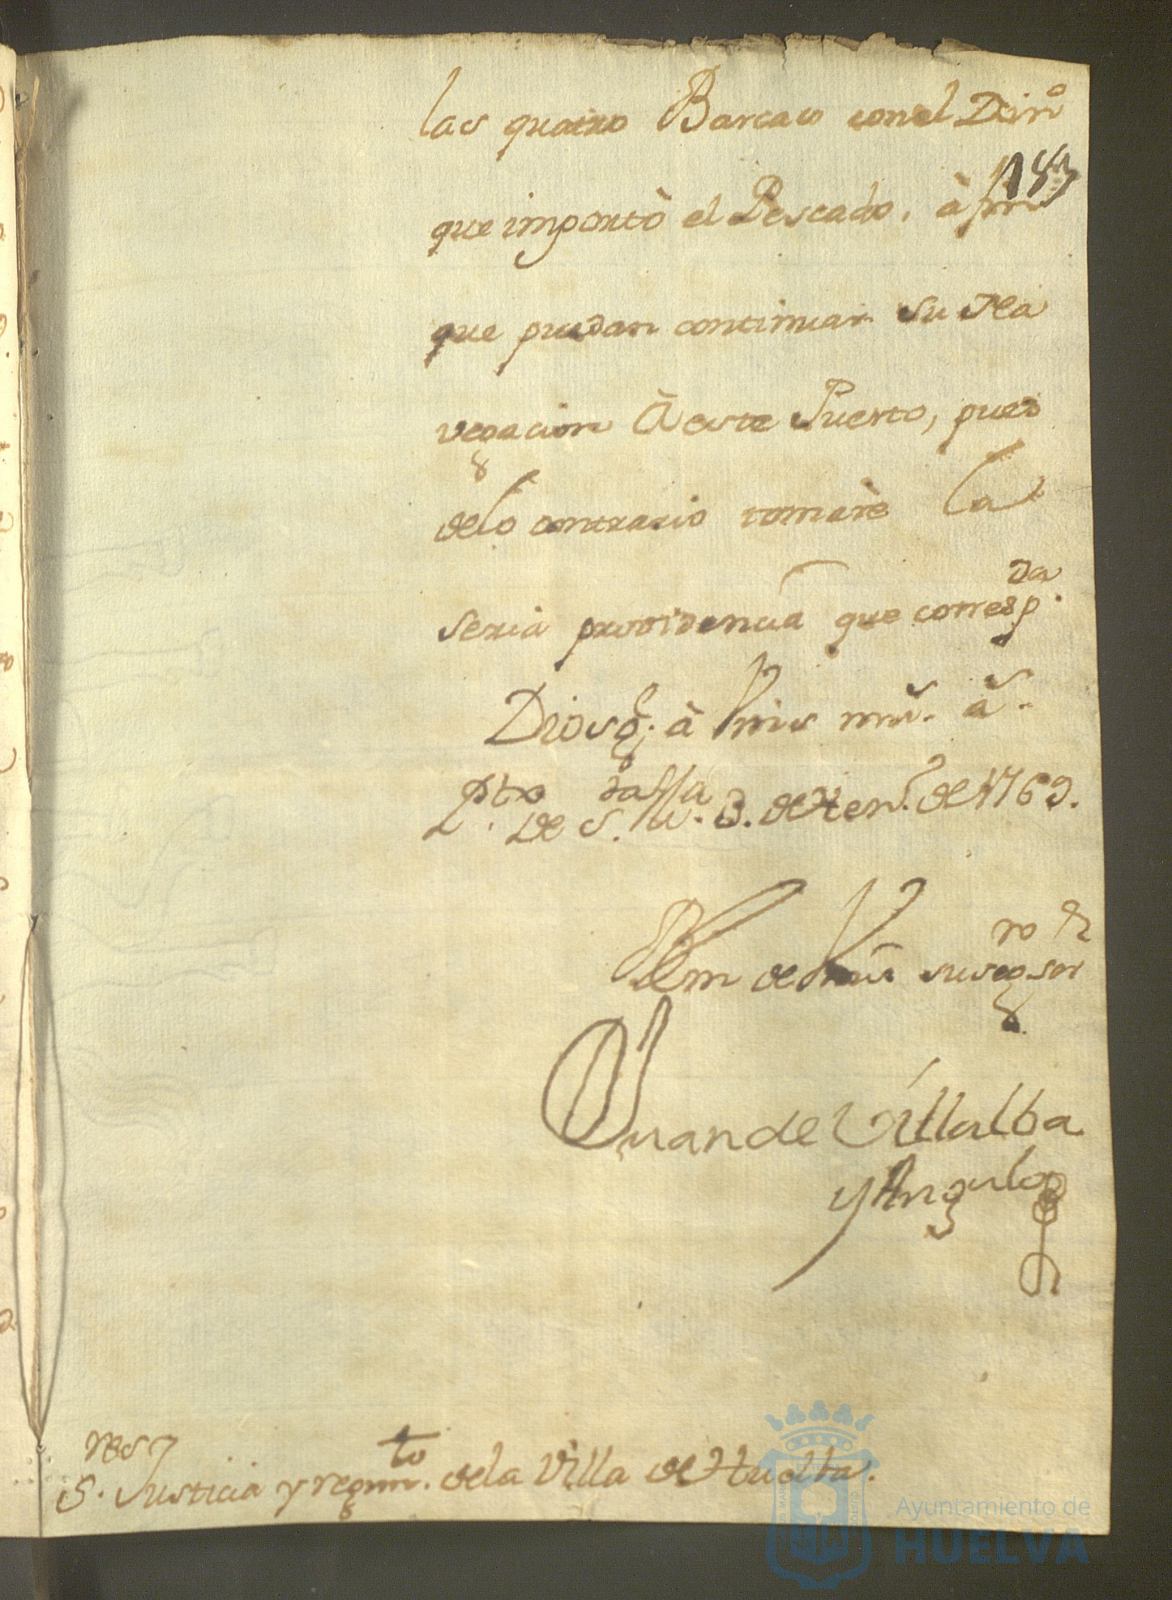 las quatro Barcas con el Din.º
187
que importò el Pescado, à fin
que puedan continuar su Na
vegacion à este Puerto, pues
delo contrario tomarè la
seria providencia que corresp.da
Dios g.e à Vms m.s a.s
Pto de S.ta M.a 3. de Hen.º de 1769.
BLm de Vms su seg.ro ser.r
Juan de Villalba
y Angulo
S.res Justicia y regim.to dela Villa de Huelba.
Ayuntamiento de
HUELVA